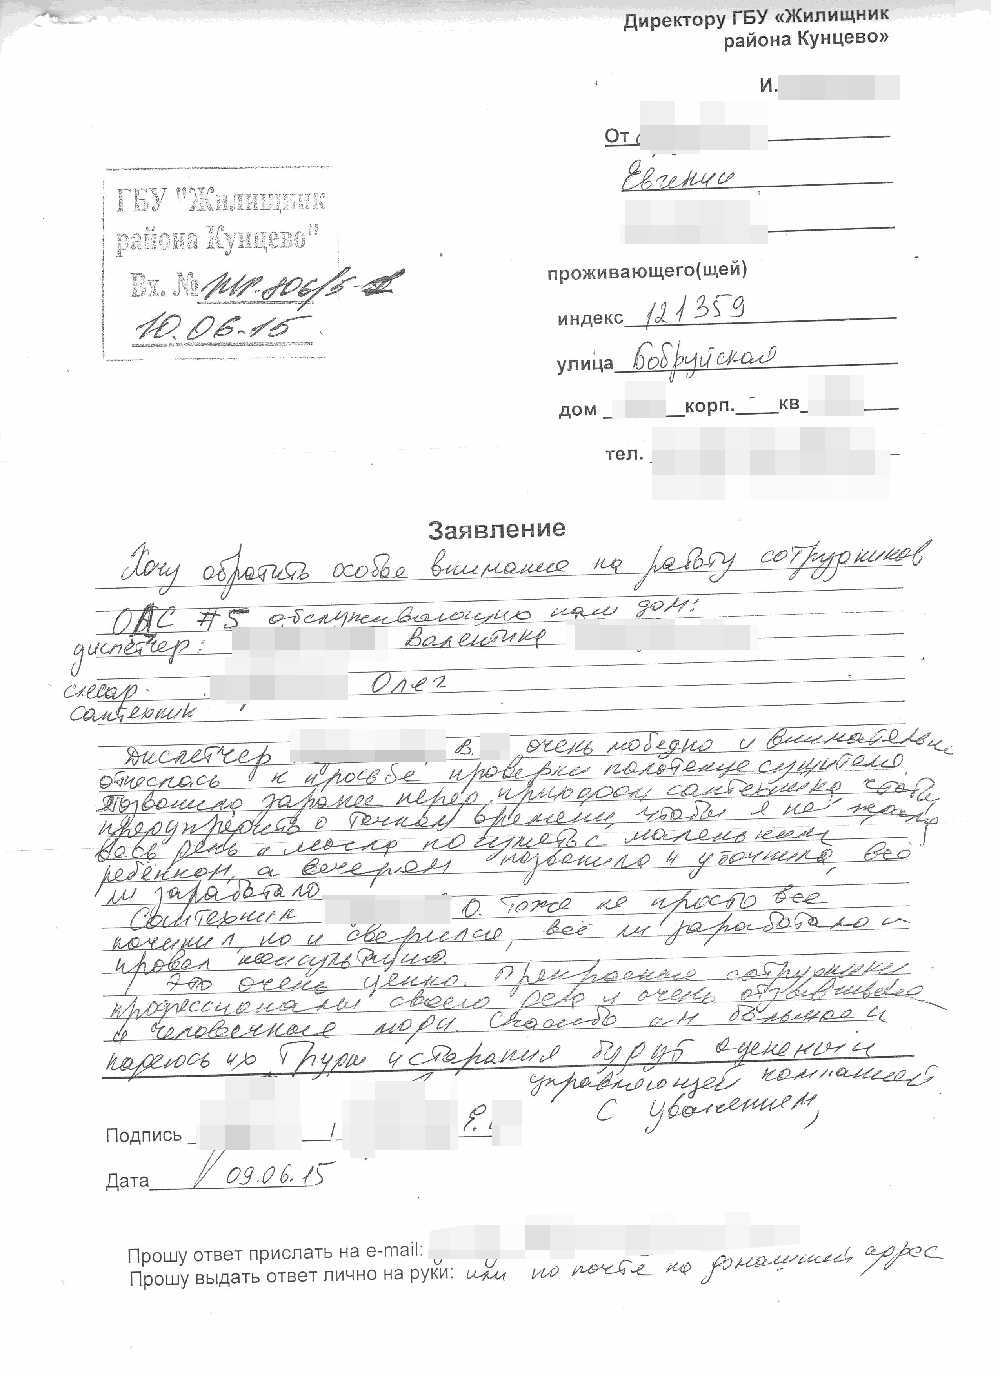 Директору ГБУ «Жилищник
района Кунцево»
И.
От
Евгении
проживающего(щей)
индекс 121359
улица Бобруйская
дом корп. - кв
тел.
ГБУ "Жилищник
района Кунцево"
Вх. №
10.06-15
Заявление
Хочу обратить особое внимание на работу сотрудников
ОДС #5 обслуживающую наш дом:
диспетчер: Валентина
слесар- Олег
сантехник
Диспетчер В. очень победно и внимательно
отнеслась к просьбе проверки полотенцесушителя.
Позвонила заранее перед приходом сантехника чтобы
предупредить о точном времени, чтобы я не ждала
весь день и могла погулять с маленьким
ребёнком, а вечером позвонила и уточнила, всё
ли заработало
Сантехник О. тоже не просто все
починил, но и сверился, всё ли заработало и
провел консультацию
Это очень ценно. Прекрасные сотрудники
профессионалы своего дела и очень отзывчивые
и человечные люди. Спасибо им большое и
надеюсь их труды и старания будут оценены
управляющей компанией
С уважением,
Подпись / Е.
Дата 09.06.15
Прошу ответ прислать на e-mail:
Прошу выдать ответ лично на руки: или по почте на домашний адрес